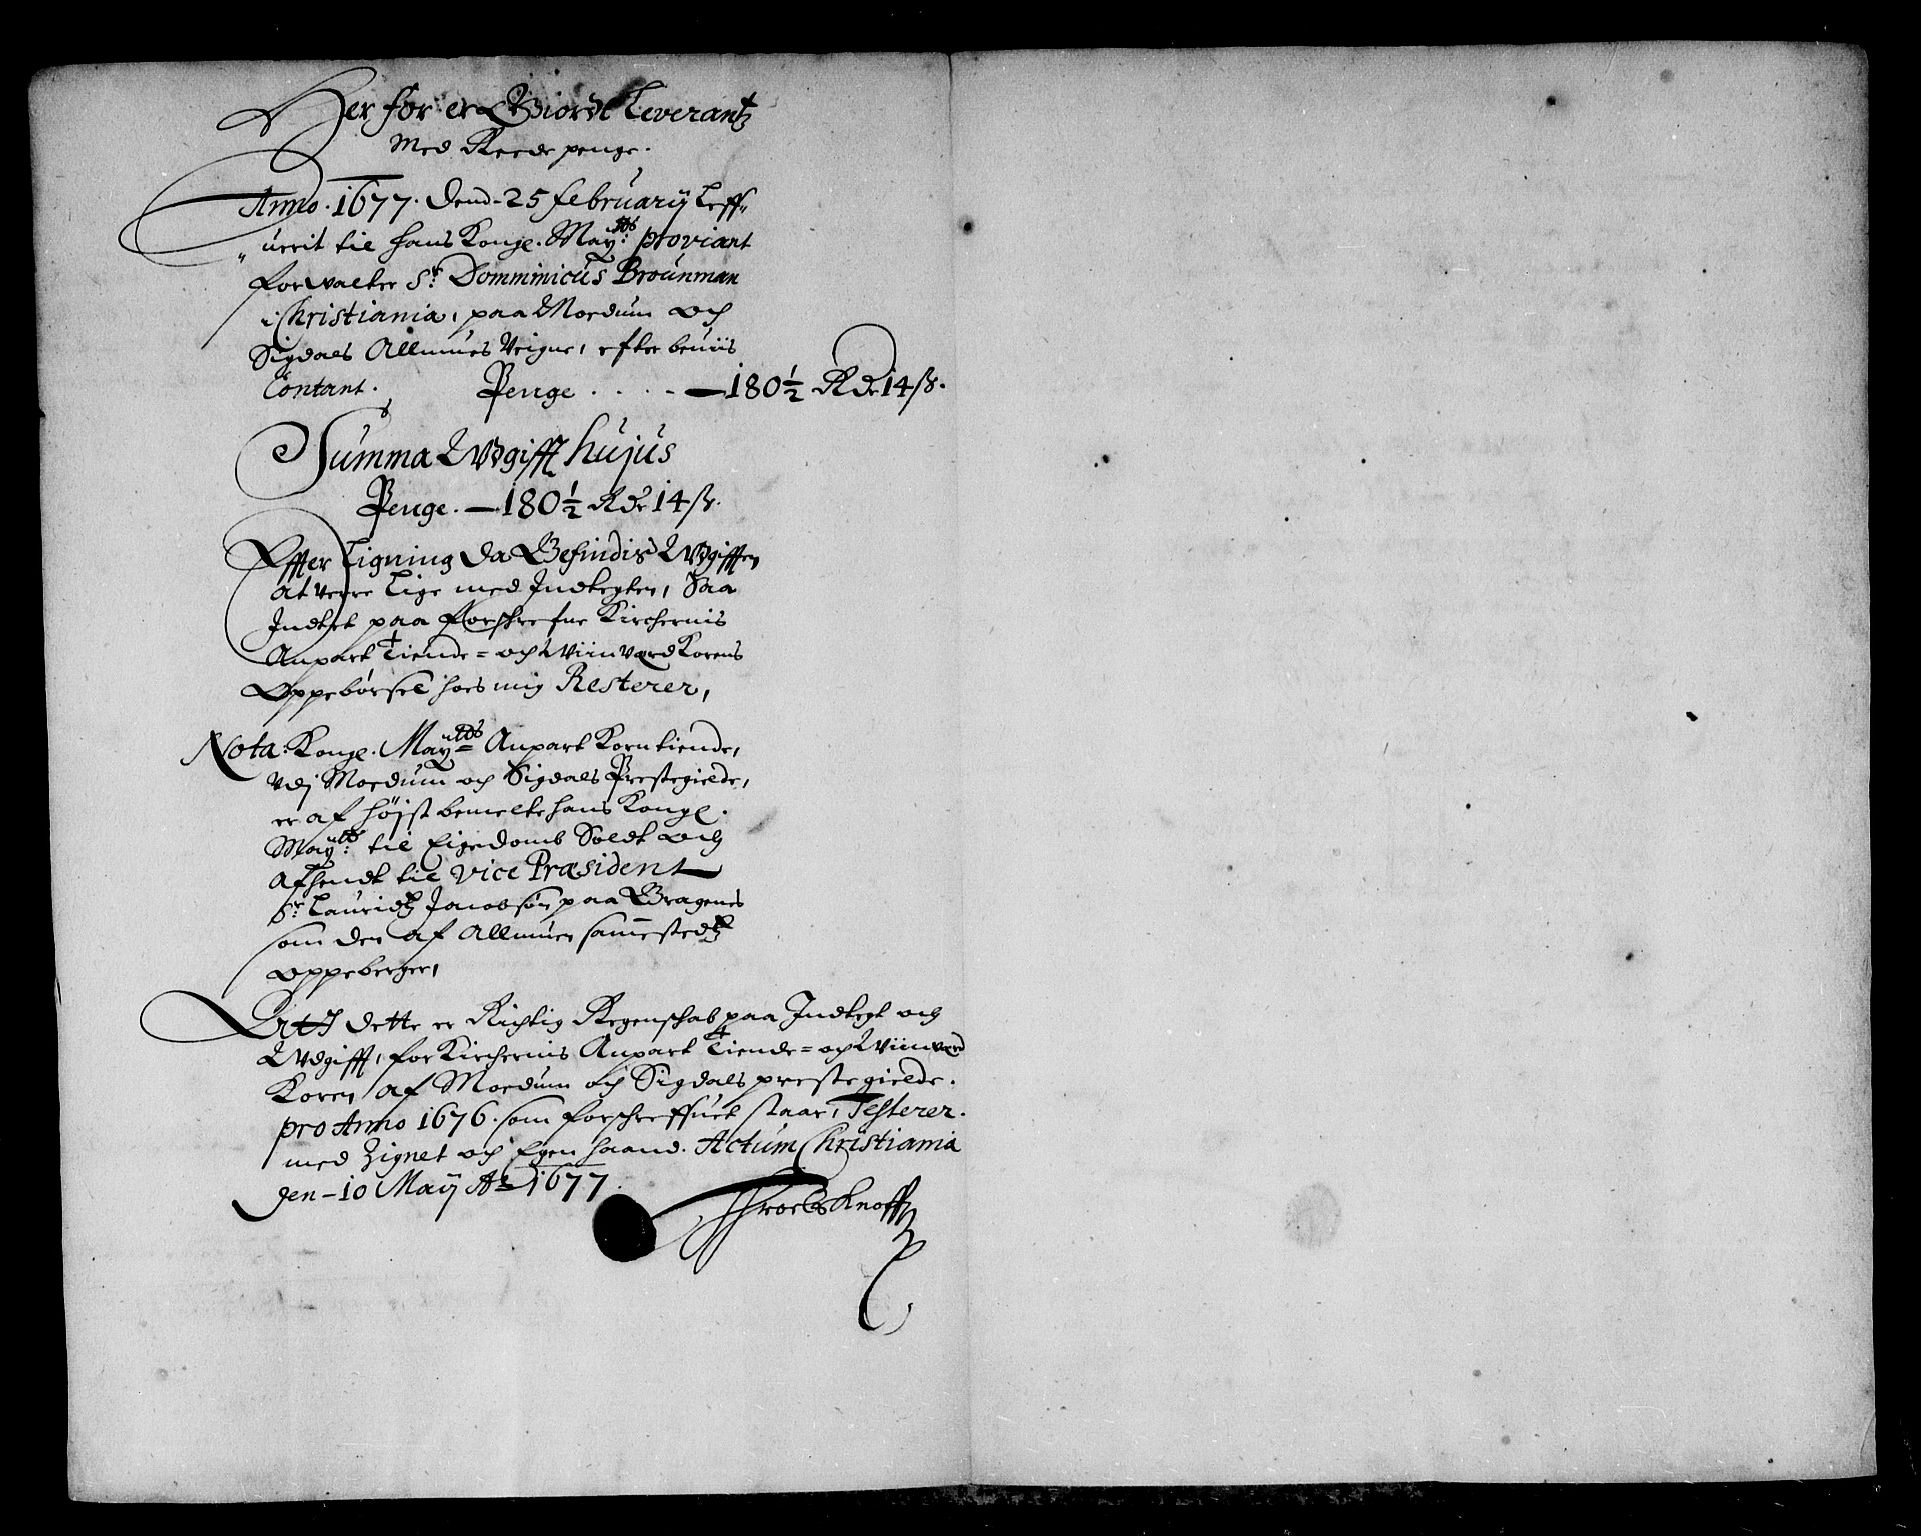 Her for er Giordt Leverantz
Med Reede penge.
Anno. 1677. Dend - 25 februarij Leff„
„uerit til hans Konge. Maytts: proviant
forvalter Sr: Domminicus Brounman
i Christiania, paa Modum och
Sigdals Allmues Veigne, efter beviis
Contant. Penge . . . . — 180½ Rdr 14 ß.
Summa Udgifft hujus
Penge. — 180½ Rdr 14 ß.
Effter Ligning da Befindis Udgifften
at verre Lige med Indtegten, Saa
Indtet paa forschrefne Kirchernis
Anpart Tiende = och Viinværd Korens
Oppebørsel hoes mig Resterer,
Nota: Konge. Maytts = Anpart Korn tiende,
Vdj Modum och Sigdals Prestegielde,
er af højst bemelte hans Kongl.
Maytts: til Eigedomb Soldt och
Afhendt til Vice Præsident
Sr: Lauridtz Jacobsøn paa Bragenes
som den af Allmuen sammestedtz
oppeberger,
At dette er Richtig Regenschab paa Indtegt och
Udgifft, for Kirchernis Anpart Tiende = och Viinværd
Koren af Modum och Sigdals prestegielde.
pro Anno 1676. som forschreffuet staar, Testerer.
med Zignet och Egen haand. Actum Christiania
den - 10 Maij Ao 1677.
Troels Knoff